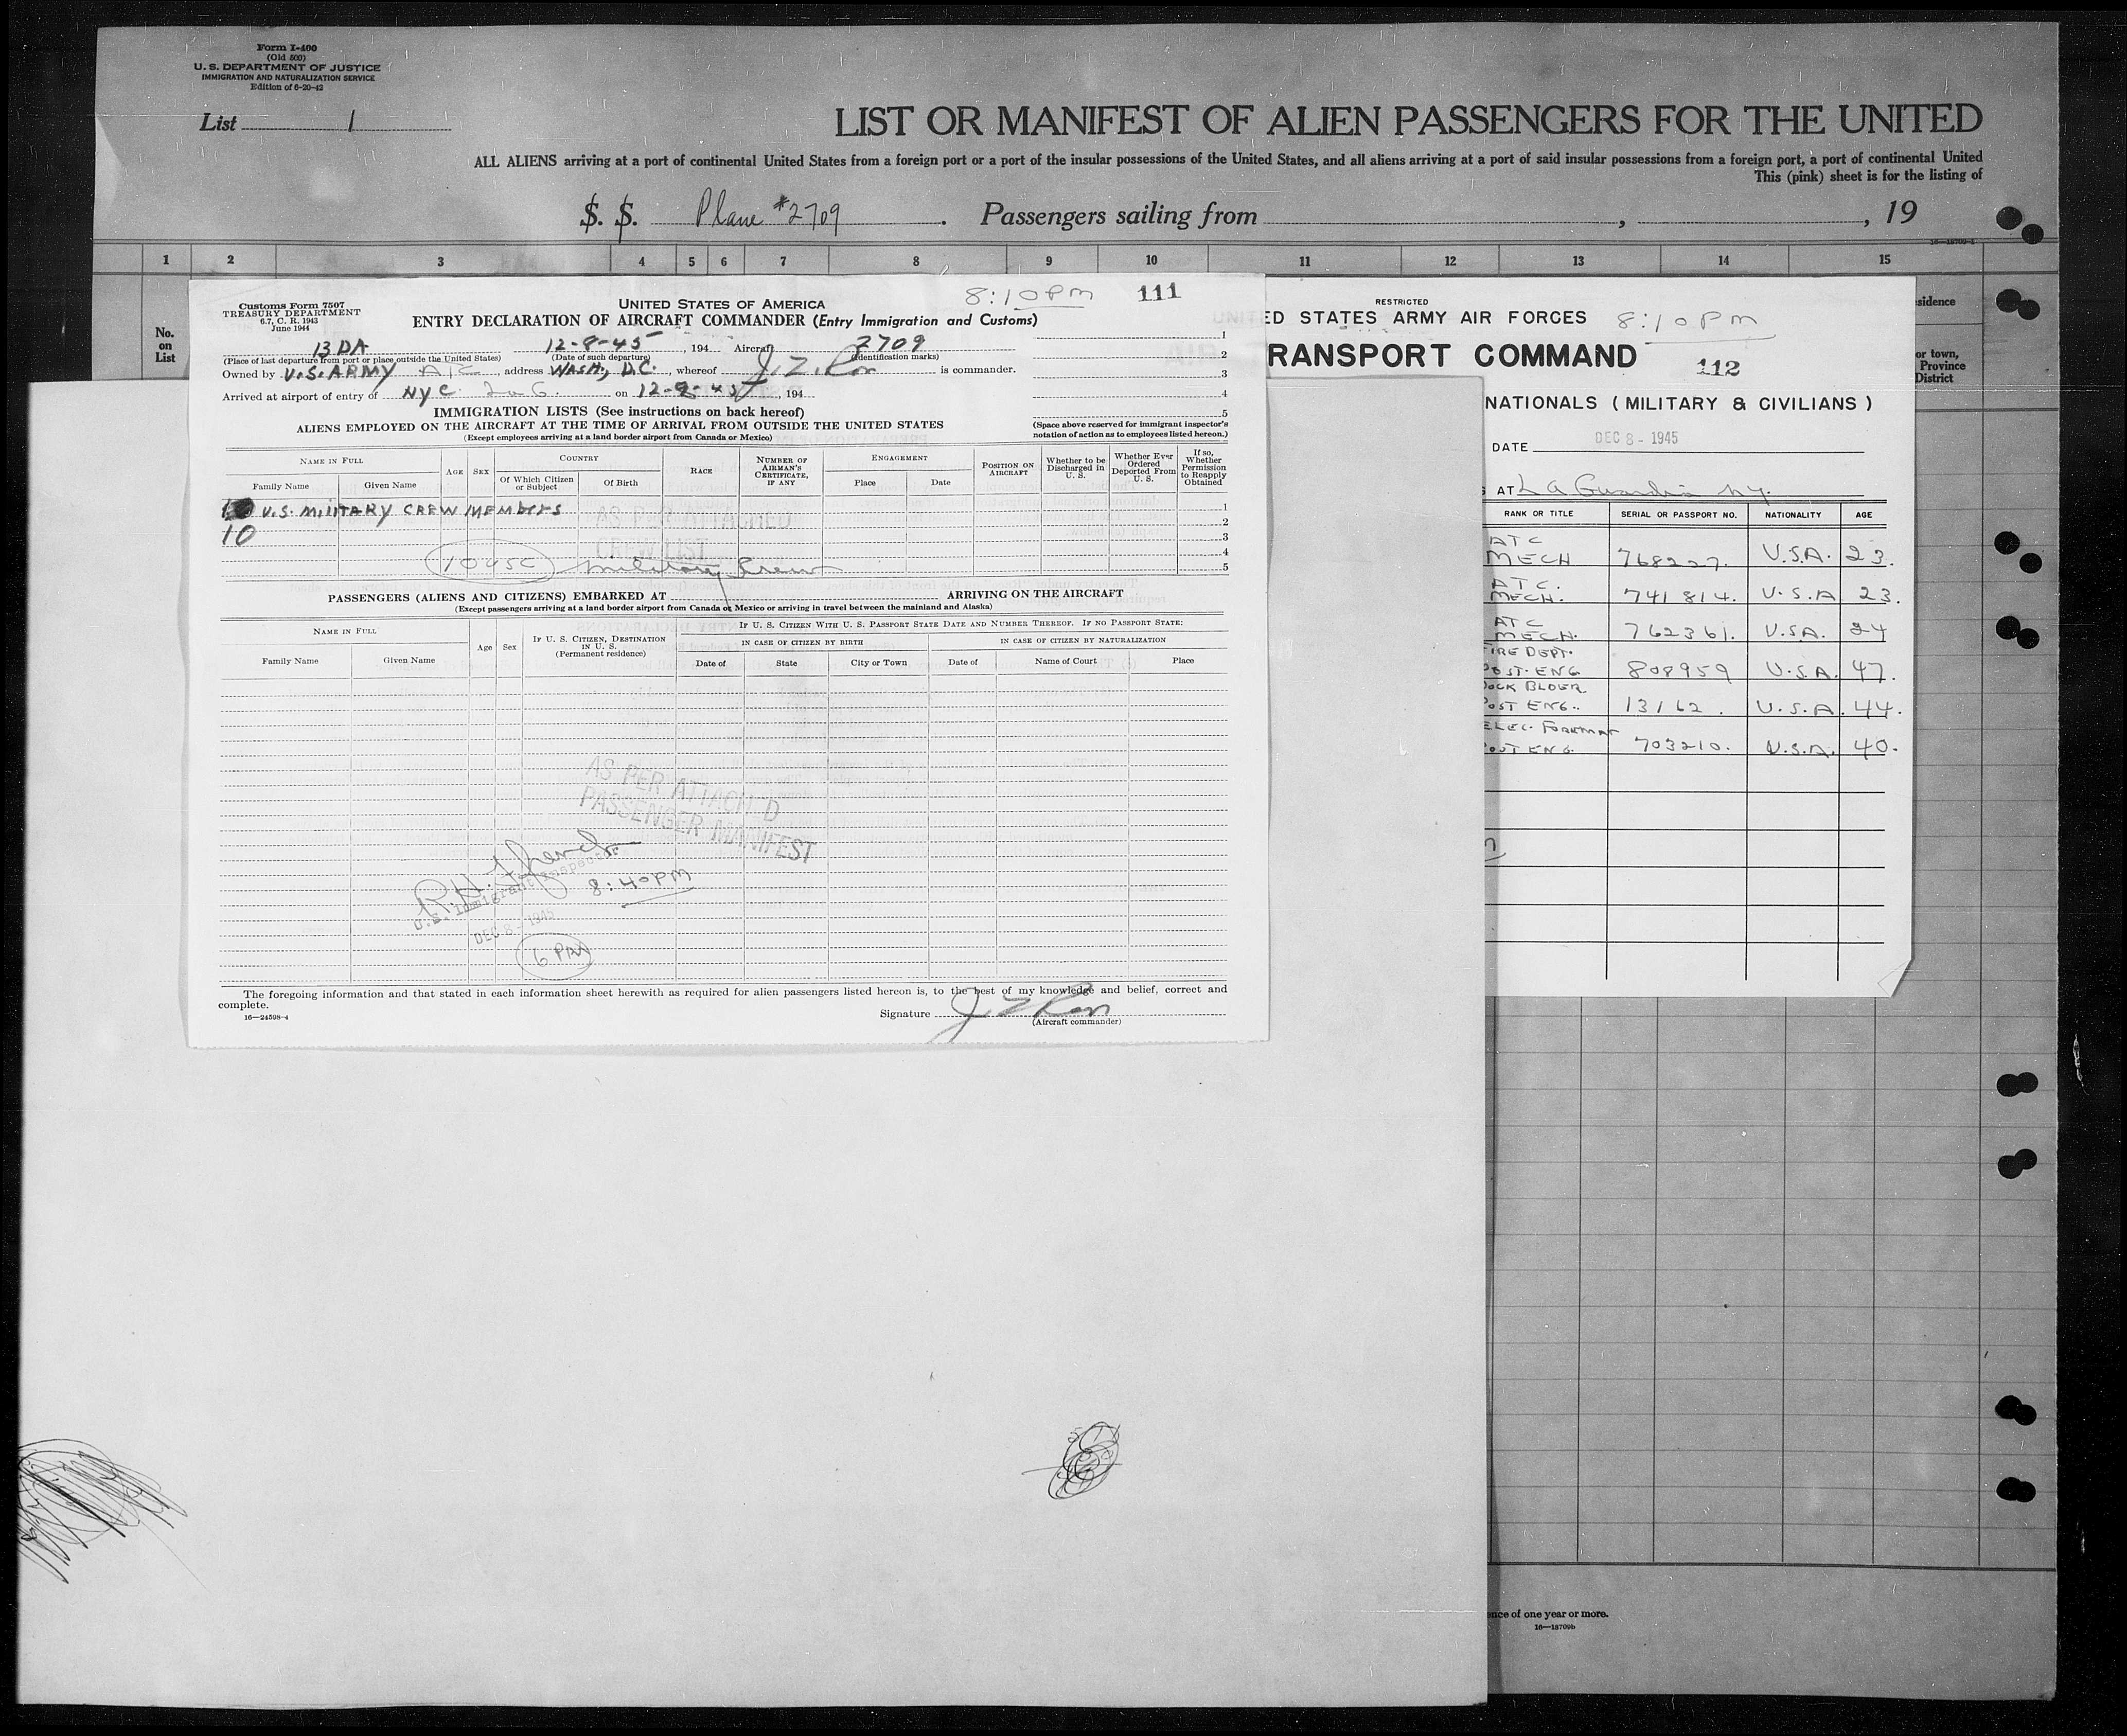 Form I-400
(Old 500)
U. S. DEPARTMENT OF JUSTICE
IMMIGRATION AND NATURALIZATION SERVICE
Edition of 6-20-42
List 1
LIST OR MANIFEST OF ALIEN PASSENGERS FOR THE UNITED
ALL ALIENS arriving at a port of continental United States from a foreign port or a port of the insular possessions of the United States, and all aliens arriving at a port of said insular possessions from a foreign port, a port of continental United
This (pink) sheet is for the listing of
S. S. Plane #2709. Passengers sailing from , , 19
1 2 3 4 5 6 7 8 9 10 11 12 13 14 15
No.
on
List
Customs Form 7507
TREASURY DEPARTMENT
6.7, C. R. 1943
June 1944
UNITED STATES OF AMERICA
8:10 PM 111
ENTRY DECLARATION OF AIRCRAFT COMMANDER (Entry Immigration and Customs)
BDA 12-8-45, 194 Aircraft 2709
(Place of last departure from port or place outside the United States) (Date of such departure) (Identification marks)
Owned by U.S. ARMY ATC, address WASH, D.C., whereof is commander.
Arrived at airport of entry of NYC on 12-8-45, 194
1
2
3
4
5
(Space above reserved for immigrant inspector's
notation of action as to employees listed hereon.)
IMMIGRATION LISTS (See instructions on back hereof)
ALIENS EMPLOYED ON THE AIRCRAFT AT THE TIME OF ARRIVAL FROM OUTSIDE THE UNITED STATES
(Except employees arriving at a land border airport from Canada or Mexico)
NAME IN FULL AGE SEX COUNTRY RACE NUMBER OF AIRMAN'S CERTIFICATE, IF ANY ENGAGEMENT POSITION ON AIRCRAFT Whether to be Discharged in U. S. Whether Ever Ordered Deported From U. S. If so, Whether Permission to Reapply Obtained
Family Name Given Name Of Which Citizen or Subject Of Birth Place Date
U.S. MILITARY CREW MEMBERS 1
10 2
AS PER ATTACHED
CREW LIST
3
4
10 USC Military Crew 5
PASSENGERS (ALIENS AND CITIZENS) EMBARKED AT ARRIVING ON THE AIRCRAFT
(Except passengers arriving at a land border airport from Canada or Mexico or arriving in travel between the mainland and Alaska)
NAME IN FULL Age Sex IF U. S. CITIZEN, DESTINATION IN U. S. (Permanent residence) IF U. S. CITIZEN WITH U. S. PASSPORT STATE DATE AND NUMBER THEREOF. IF NO PASSPORT STATE:
IN CASE OF CITIZEN BY BIRTH IN CASE OF CITIZEN BY NATURALIZATION
Family Name Given Name Date of State City or Town Date of Name of Court Place
AS PER ATTACH D
PASSENGER MANIFEST
U.S. Immigrant Inspector
8:40 PM
DEC 8 - 1945
6 PM
The foregoing information and that stated in each information sheet herewith as required for alien passengers listed hereon is, to the best of my knowledge and belief, correct and
complete.
16—24598-4
Signature
(Aircraft commander)
RESTRICTED
ED STATES ARMY AIR FORCES 8:10 PM
RANSPORT COMMAND 112
NATIONALS (MILITARY & CIVILIANS)
DATE DEC 8 - 1945
AT La Guardia N.Y.
RANK OR TITLE SERIAL OR PASSPORT NO. NATIONALITY AGE
ATC
MECH 768227. U.S.A. 23.
ATC.
MECH. 741814. U.S.A 23.
ATC
MECH. 762361. U.S.A. 24
FIRE DEPT.
POST. ENG 808959 U.S.A. 47.
DOCK BLDER
POST ENG. 13162. U.S.A. 44.
ELEC. FOREMAN
POST ENG. 703210. U.S.A. 40.
sidence
or town,
Province
District
ence of one year or more.
16—18709b